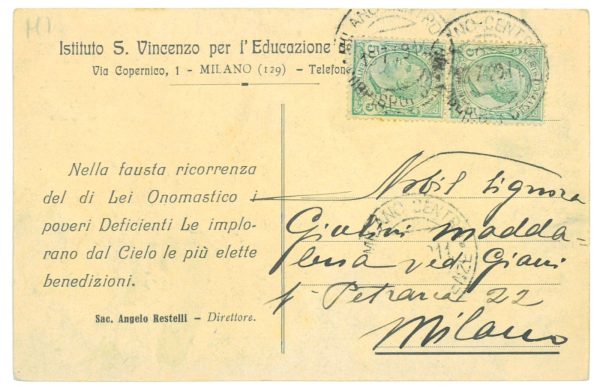 MI
Istituto S. Vincenzo per l'Educazione
Via Copernico, 1 - MILANO (129) - Telefono
Nella fausta ricorrenza
del di Lei Onomastico i
poveri Deficienti Le implo-
rano dal Cielo le più elette
benedizioni.
Sac. Angelo Restelli - Direttore.
MILANO CENTRO
Nobil Signora
Giulini Madda-
lena ved. Giani
Petrarca 22
Milano